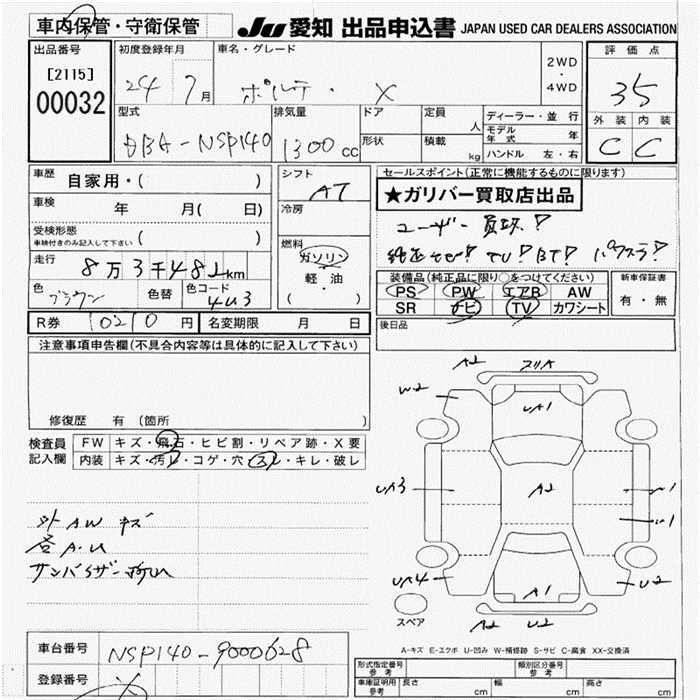 車内保管・守衛保管
JU 愛知 出品申込書 JAPAN USED CAR DEALERS ASSOCIATION
出品番号
[2115]
00032
初度登録年月
24 7月
車名・グレード
ポルテ・ X
2WD
・
4WD
評価点
35
外装 内装
C C
型式
DBA-NSP140
排気量
1300cc
ドア
形状
定員
人
積載
kg
ディーラー・並行
モデル年式 年
ハンドル 左・右
車歴
自家用・( )
車検
年 月( 日)
受検形態
車検付きのみ記入して下さい ( )
走行
8万3千482km
色
ブラウン
色替
色コード
4U3
シフト
AT
冷房
燃料
ガソリン
・
軽油
( ・ )
セールスポイント(正常に機能するものに限ります)
★ガリバー買取店出品
ユーザー買取!
純正ナビ! TV! BT! パワスラ!
装備品(純正品に限り○をつけてください)
PS PW エアB AW
SR ナビ TV カワシート
新車保証書
有・無
R券 10210円
名変期限 月 日
後日品
注意事項申告欄(不具合内容等は具体的に記入して下さい)
修復歴 有 (箇所 )
検査員記入欄
FW キズ・飛石・ヒビ割・リペア跡・X要
内装 キズ・汚レ・コゲ・穴・スレ・キレ・破レ
外AWキズ
各A.U
A2
W2
UA1
UA3
A2
UA4
A1
U2
A2 U2
スペア
A-キズ E-エクボ U-凹み W-補修跡 S-サビ C-腐食 XX-交換済
車台番号
NSP140-9000628
登録番号
形式指定番号
参考
類別区分番号
参考
車庫証明用
参考
長さ cm
幅 cm
高さ cm